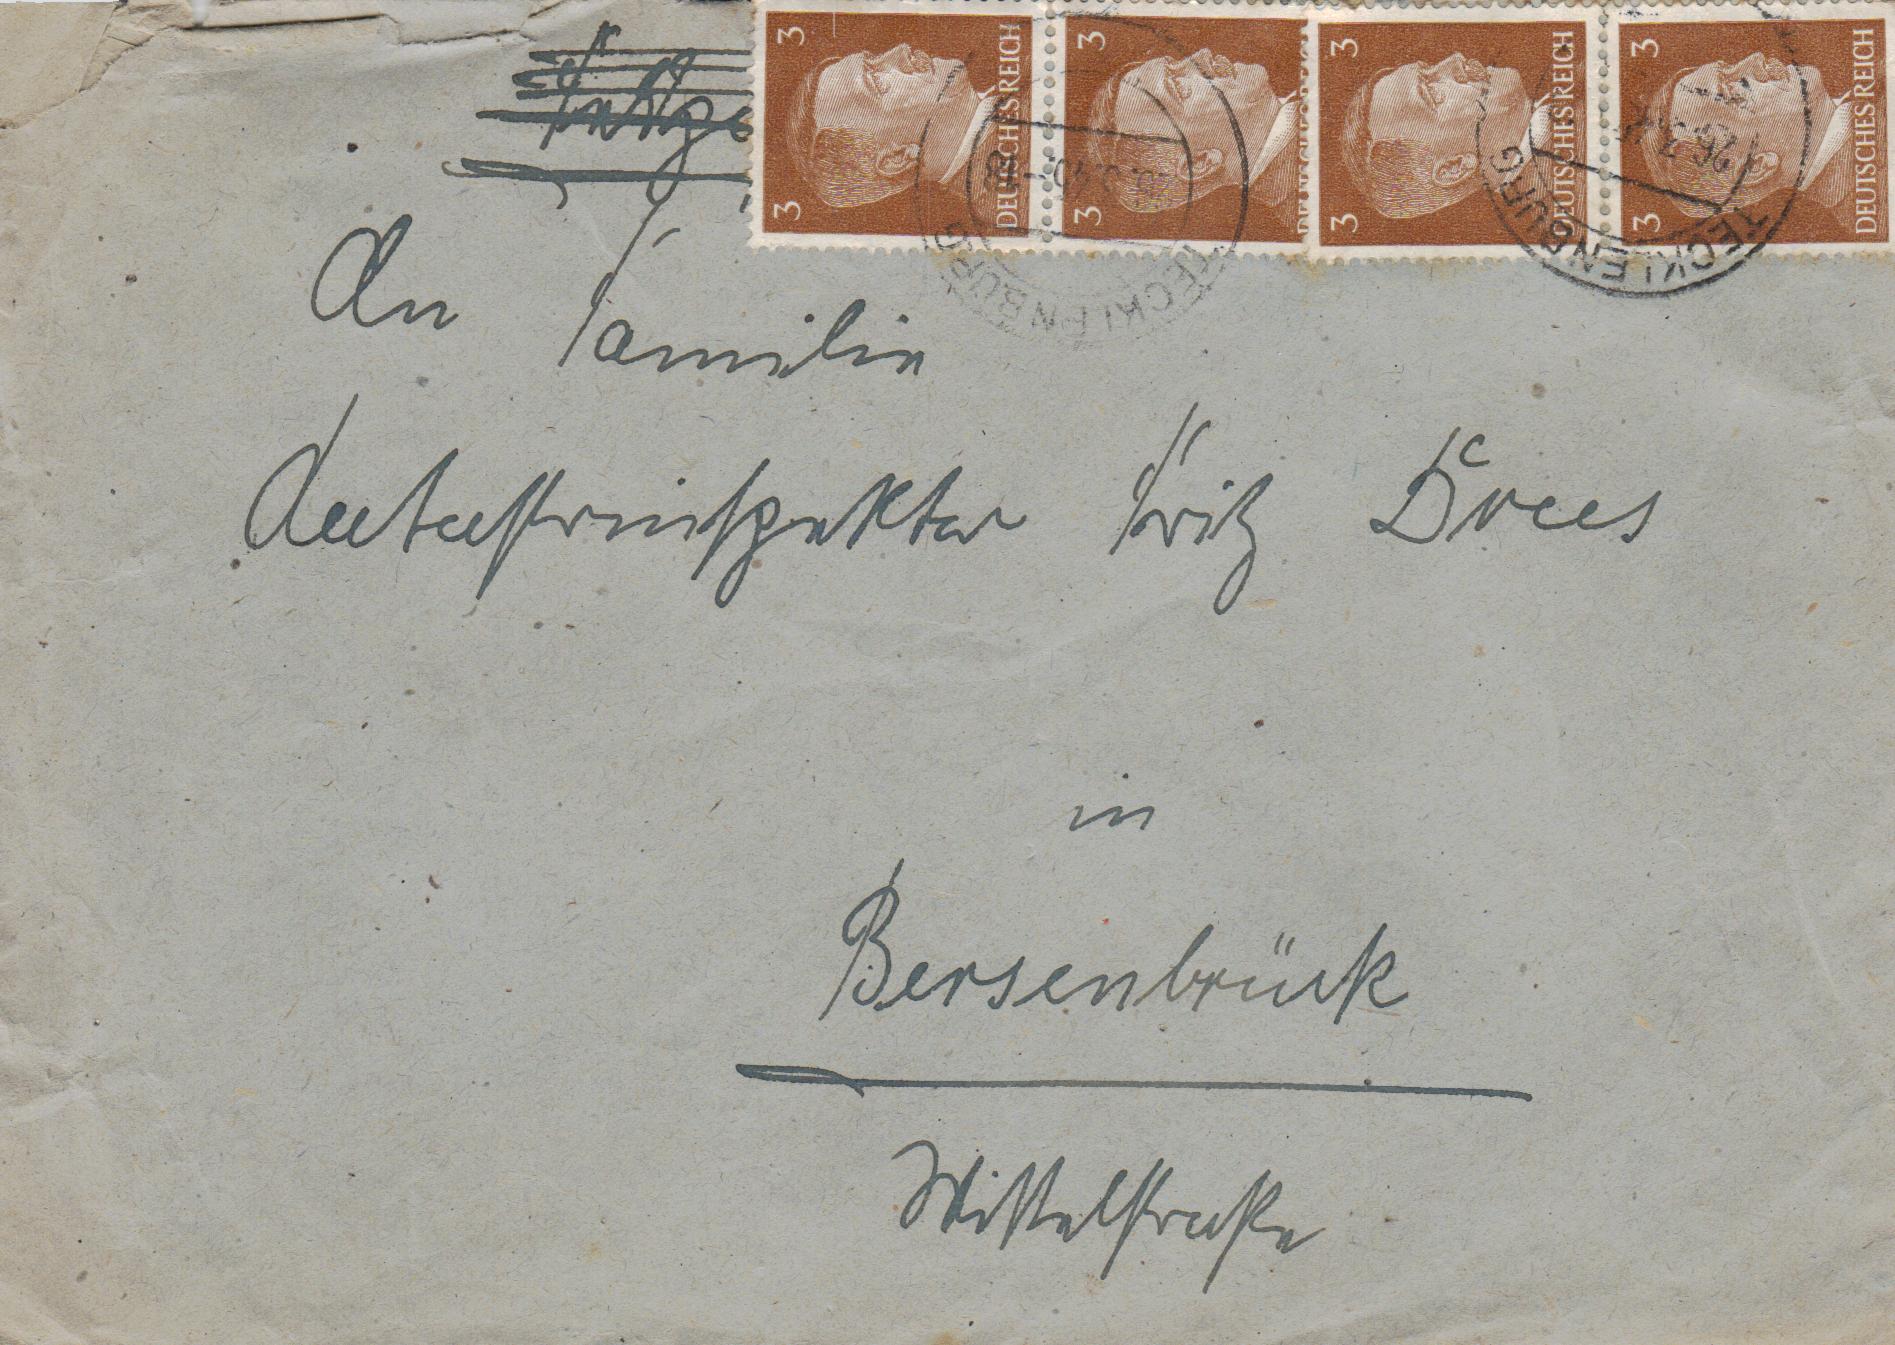 3 DEUTSCHES REICH 3
3 DEUTSCHES REICH 3
3 DEUTSCHES REICH 3
3 DEUTSCHES REICH 3
TECKLENBURG
TECKLENBURG
An Familie
Katasterinspektor Fritz Drees
in
Bersenbrück
Mittelstraße